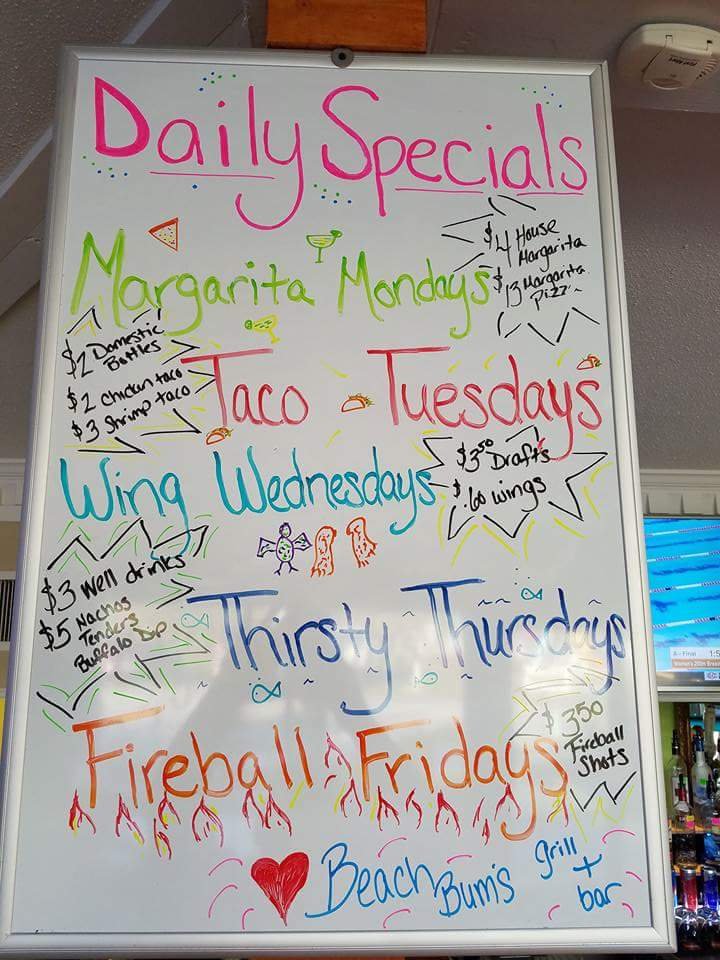 Daily Specials
Margarita Mondays
$4 House
Margarita
$13 Margarita
Pizza
$2 Domestic
Bottles
$2 chicken taco
$3 Shrimp taco
Taco Tuesdays
Wing Wednesdays
$3⁵⁰ Drafts
$.60 wings
$3 Well drinks
$5 Nachos
Tenders
Buffalo Dip
Thirsty Thursdays
Fireball Fridays
$350
Fireball
Shots
Beach Bum's grill
+
bar